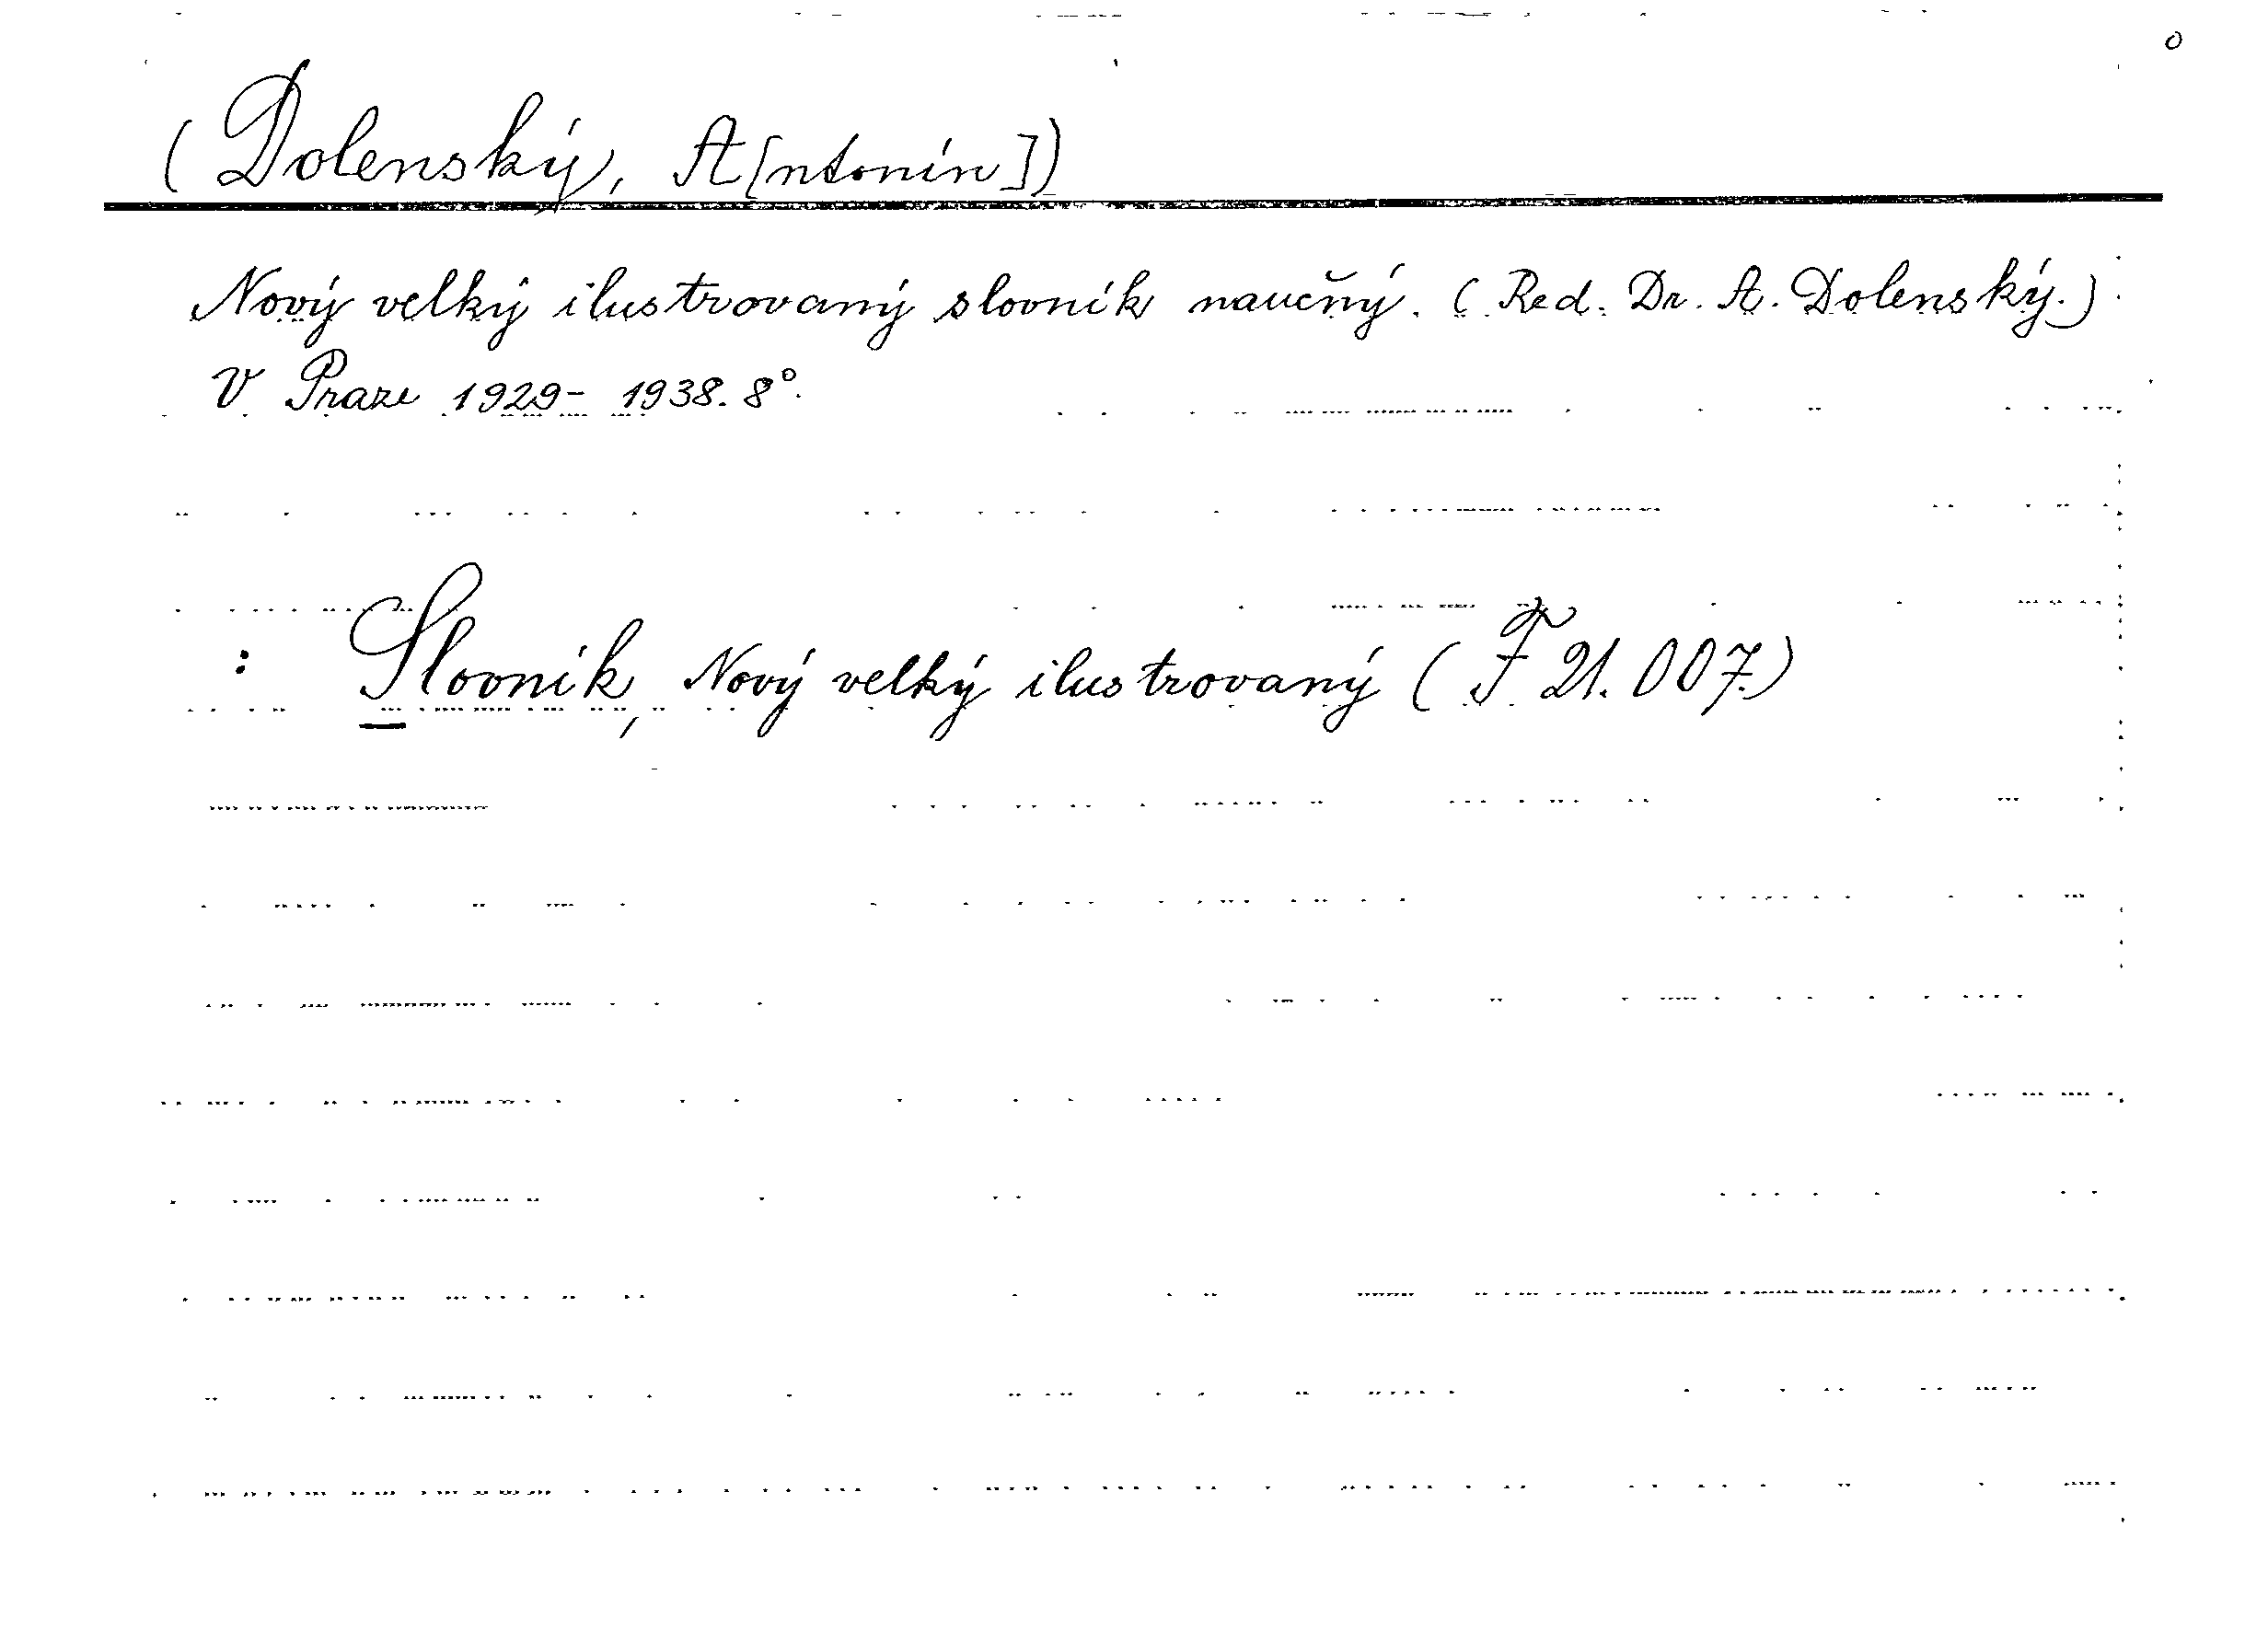 (Dolenský, A[ntonín])
Nový velký ilustrovaný slovník naučný. (Red. Dr. A. Dolenský.)
V Praze 1929-1938. 8°.
: Slovník, Nový velký ilustrovaný (F 21.007.)